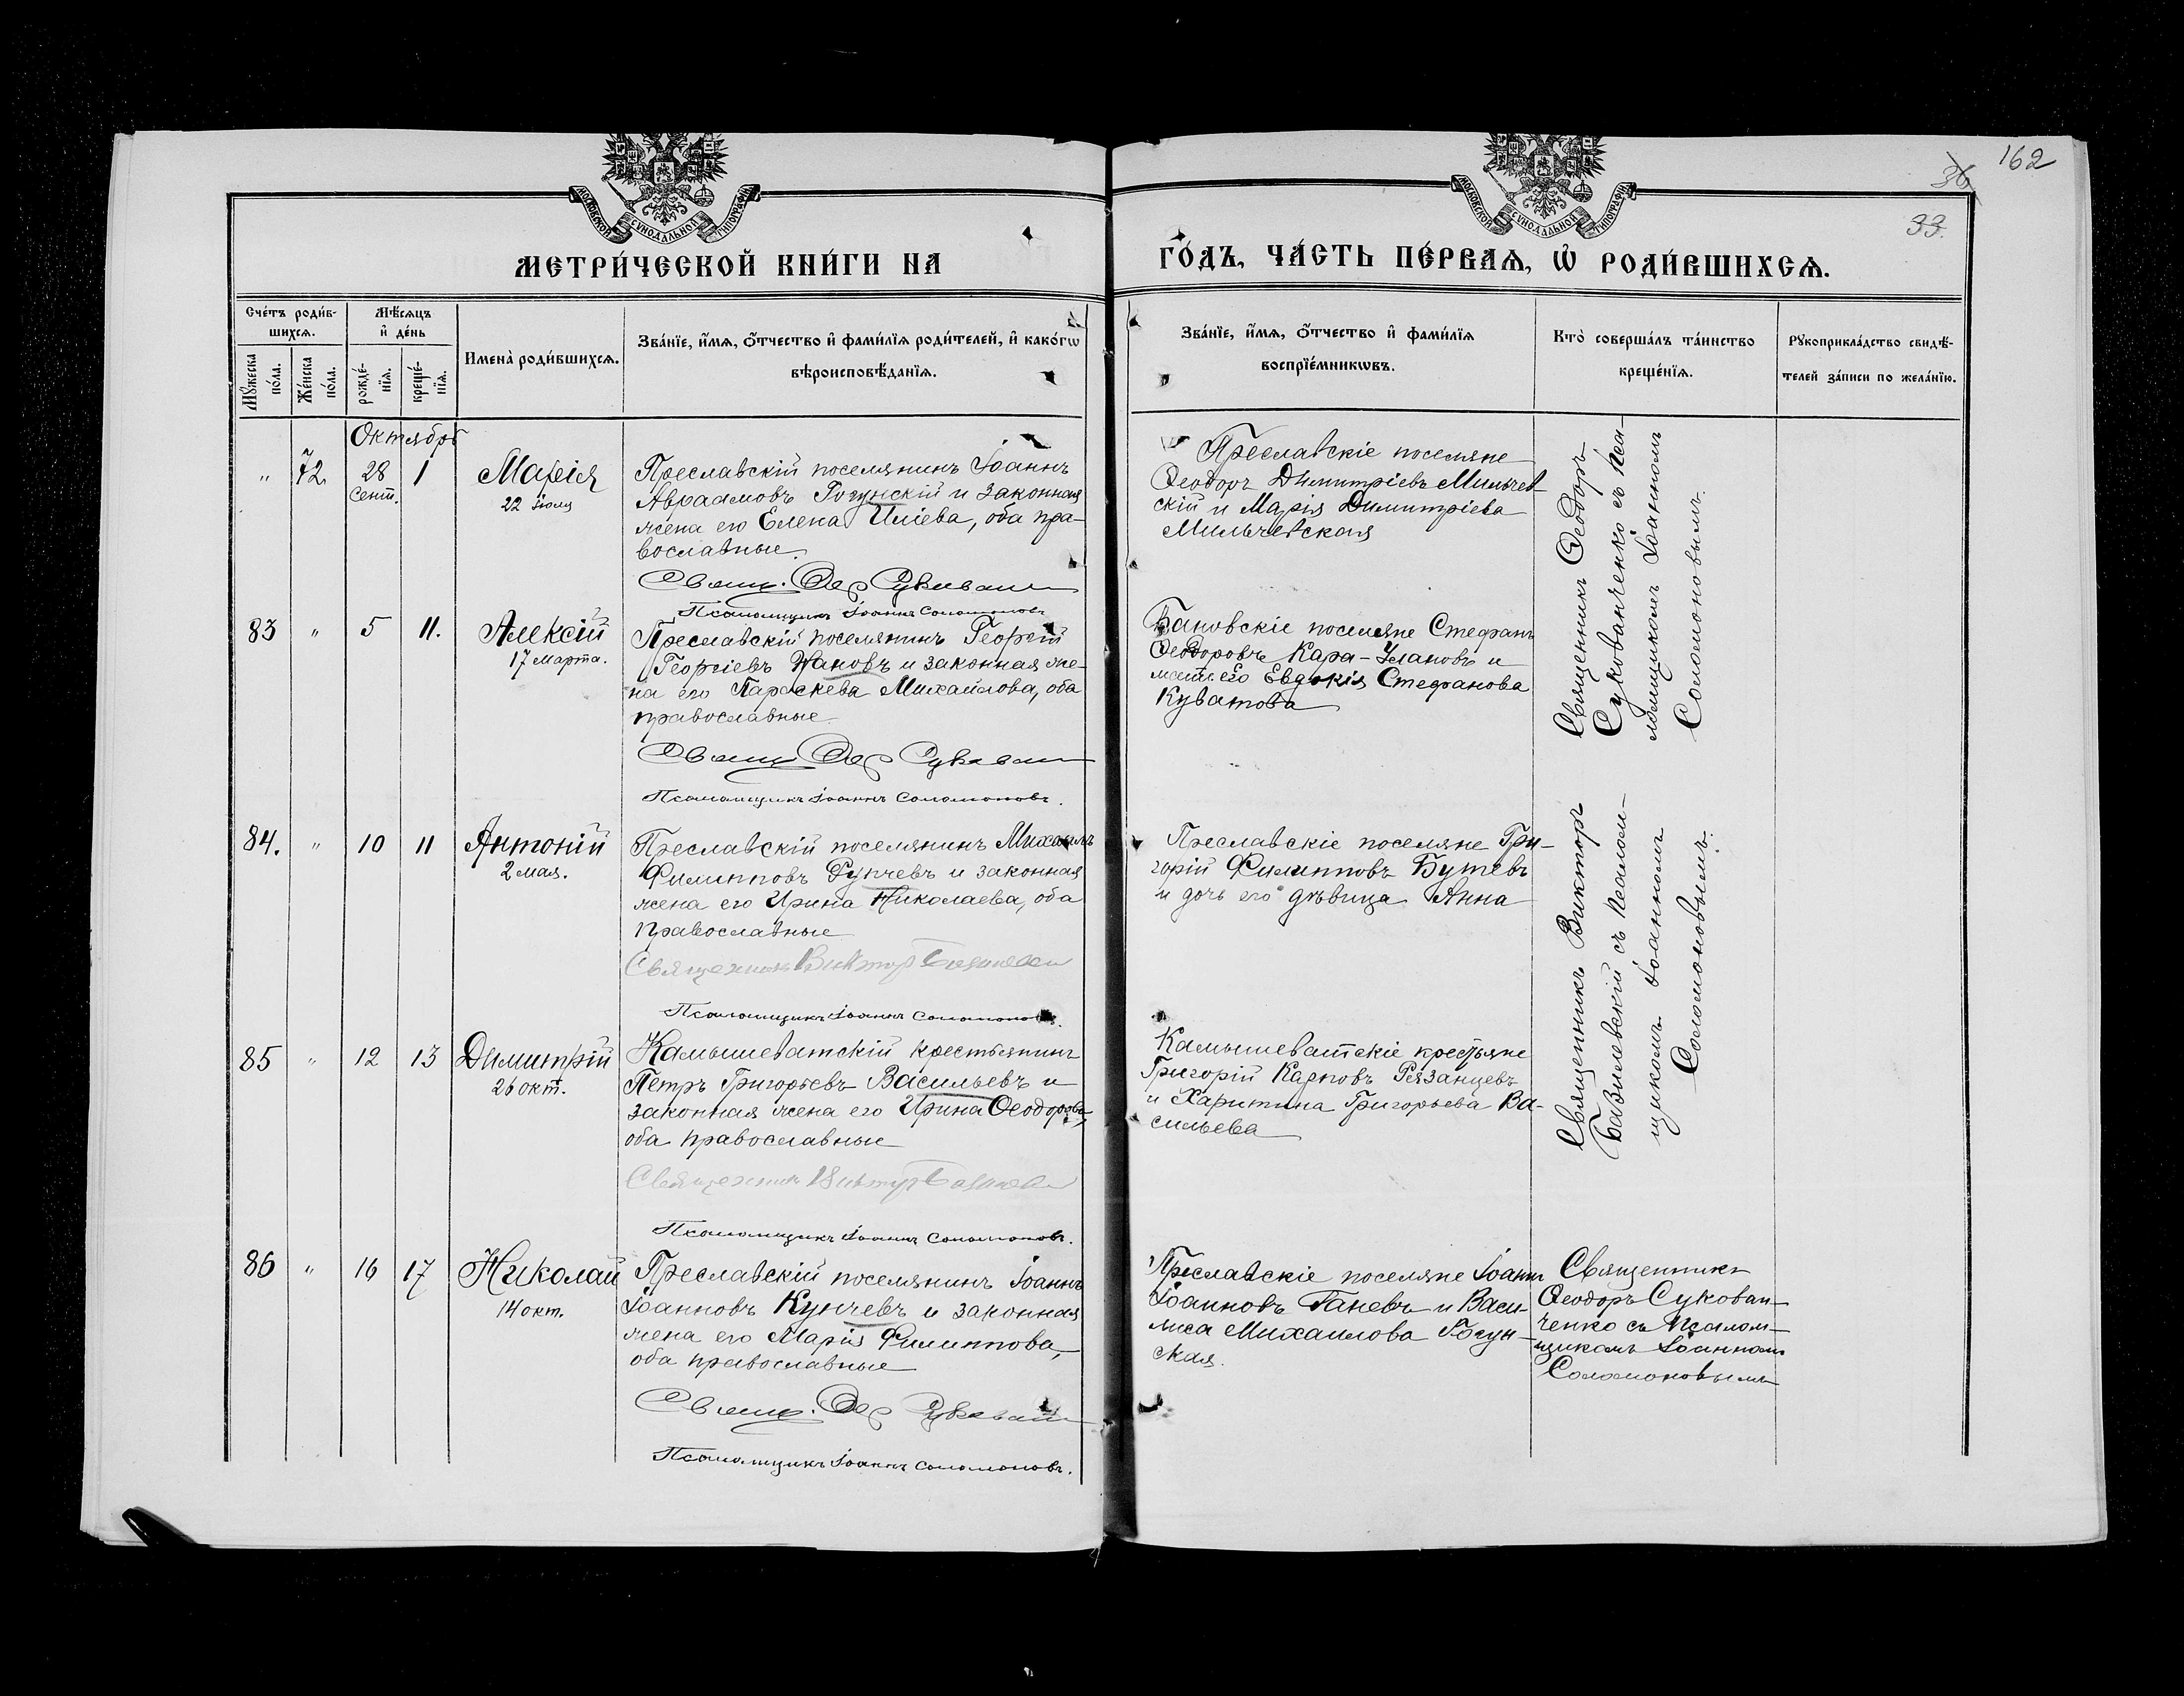 162
36
33.
МОСКОВСКОЙ СѴНОДАЛЬНОЙ ТИПОГРАФІИ
МОСКОВСКОЙ СѴНОДАЛЬНОЙ ТИПОГРАФІИ
МЕТРИ́ЧЕСКОЙ КНИ́ГИ НА
ГО́ДЪ, ЧА́СТЬ ПЕ́РВАѦ, Ѽ РОДИ́ВШИХСѦ.
Сче́тъ роди́в-
шихсѧ.
Мꙋ́жеска
по́ла.
Же́нска
по́ла.
Мѣ́сѧцъ
и҆ де́нь
рожде́-
нїѧ.
креще́-
нїѧ.
Имена̀ роди́вшихсѧ.
Зва́нїе, и҆́мѧ, ѻ҆́тчество и҆ фами́лїѧ роди́телей, и҆ како́гѡ
вѣроисповѣ́данїѧ.
Зва́нїе, и҆́мѧ, ѻ҆́тчество и҆ фами́лїѧ
воспрїе́мникѡвъ.
Кто̀ соверша́лъ та́инство
креще́нїѧ.
Рꙋкоприкла́дство свидѣ́-
телей за́писи по жела́нїю.
Октябрь
" 72. 28 1 Марія
Сент.
22 Іюля
Преславскій поселянинъ Іоаннъ
Авраамовъ Гогунскій и законная
жена его Елена Иліева, оба пра-
вославные.
Свящ. Ѳеод Сукован
Псаломщикъ Іоаннъ Соломоновъ
Преславскіе поселяне
Ѳеодоръ Димитріевъ Мильчев-
скій и Марія Димитріева
Мильчевская
Священникъ Ѳеодоръ
Сукованченко съ Пса-
ломщикомъ Іоанномъ
Соломоновымъ.
83 " 5 11. Алексій
17 марта.
Преславскій поселянинъ Георгій
Георгіевъ Жановъ и законная же-
на его Параскева Михайлова, оба
православные
Свящ Ѳеод Сукован
Псаломщикъ Іоаннъ Соломоновъ.
Бановскіе поселяне Стефанъ
Ѳеодоровъ Кара-Улановъ и
мать его Евдокія Стефанова
Куватова
84. " 10 11 Антоній
2 мая.
Преславскій поселянинъ Михаилъ
Филипповъ Рупчевъ и законная
жена его Ирина Николаева, оба
православные
Священникъ Викторъ Базилевскій
Псаломщикъ Іоаннъ Соломоновъ.
Преславскіе поселяне Гри-
горій Филипповъ Бутевъ
и дочь его дѣвица Анна
Священникъ Викторъ
Базилевскій съ псалом-
щикомъ Іоанномъ
Соломоновымъ.
85 " 12 13 Димитрій
26 окт.
Камышеватскій крестьянинъ
Петръ Григорьевъ Васильевъ и
законная жена его Ирина Ѳеодорова,
оба православные
Священникъ Викторъ Базилевскій
Псаломщикъ Іоаннъ Соломоновъ.
Камышеватскіе крестьяне
Григорій Карповъ Рязанцевъ
и Харитина Григорьева Ва-
сильева
86 " 16 17 Николай
14 окт.
Преславскій поселянинъ Іоаннъ
Іоанновъ Кунчевъ и законная
жена его Марія Филиппова,
оба православные
Свящ. Ѳеод Сукован
Псаломщикъ Іоаннъ Соломоновъ.
Преславскіе поселяне Іоаннъ
Іоанновъ Ганевъ и Васи-
лиса Михаилова Гогун-
ская.
Священникъ
Ѳеодоръ Сукован-
ченко съ Псалом-
щикомъ Іоанномъ
Соломоновымъ